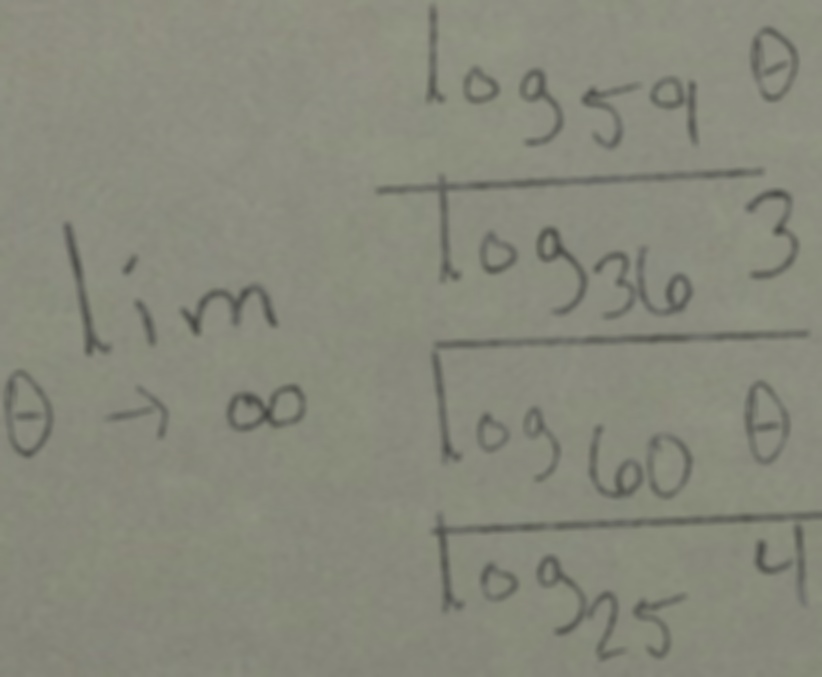 lim θ → ∞
log₅₉ θ
log₃₆ 3
log₆₀ θ
log₂₅ 4